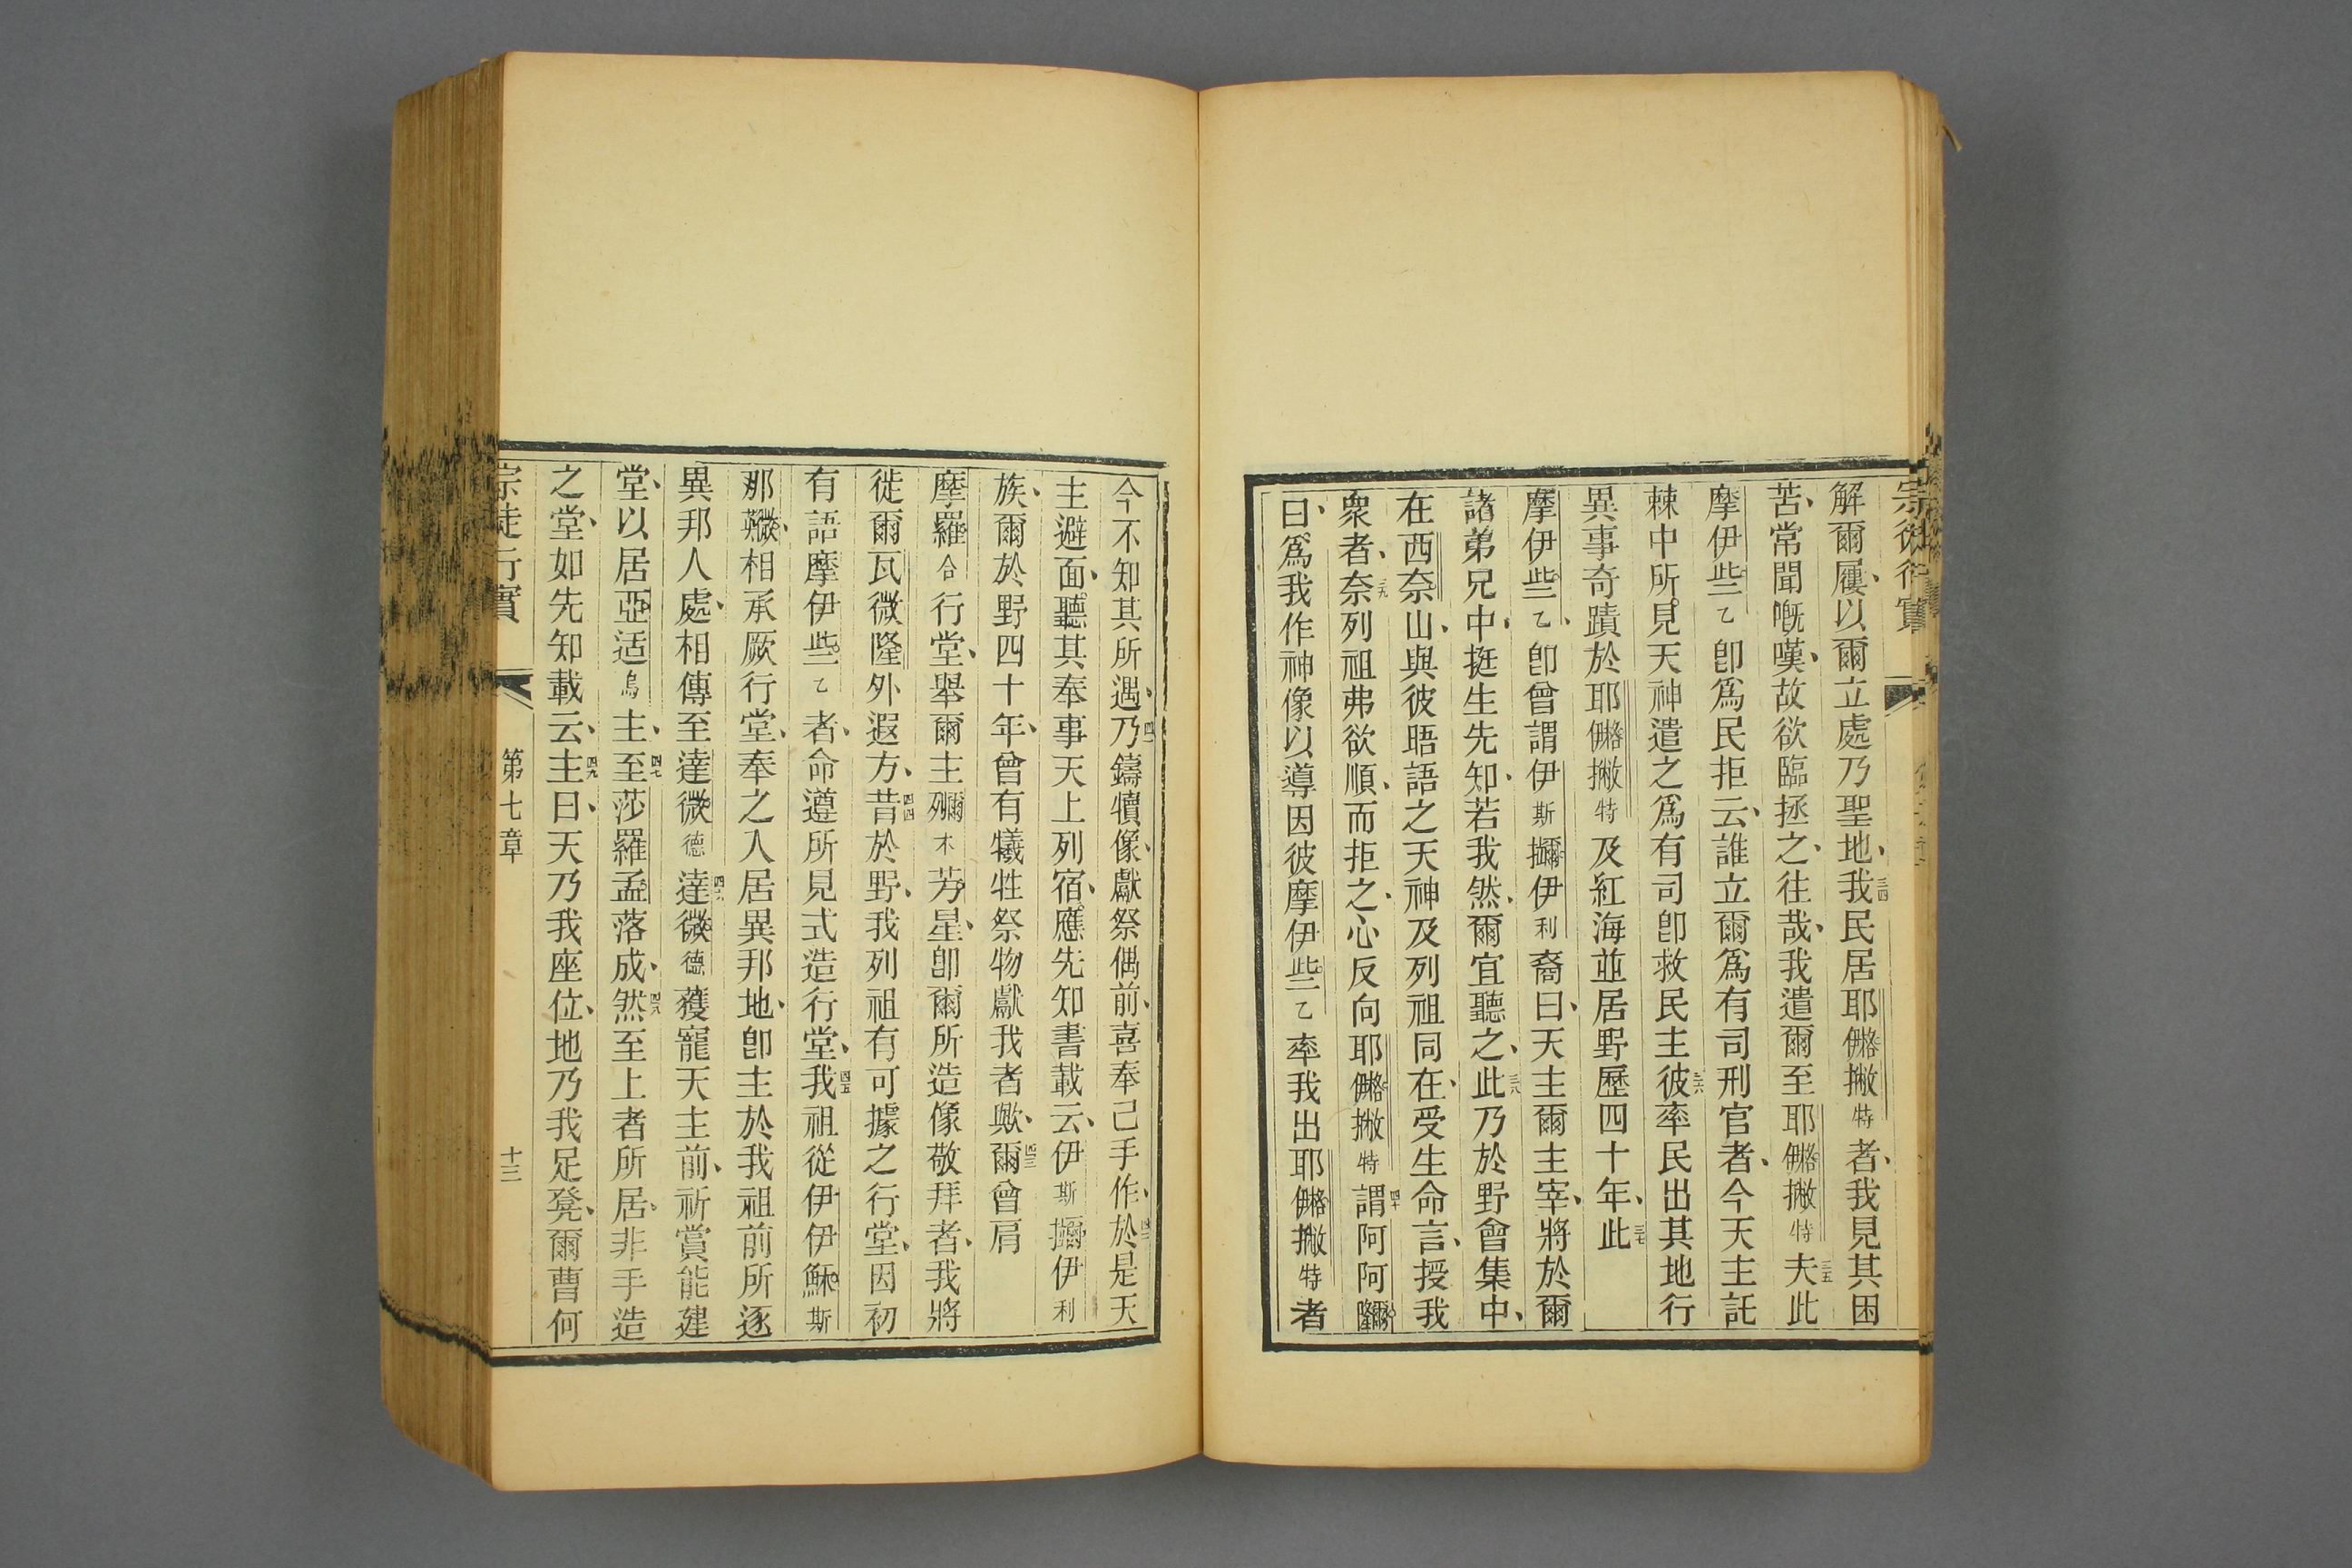 宗徒行實
解爾屨、以爾立處乃聖地、三四我民居耶𠐺撇特者、我見其困
苦、常聞嘅嘆、故欲臨拯之、往哉、我遣爾至耶𠐺撇特三五夫此
摩伊些乙卽爲民拒云、誰立爾爲有司刑官者、今天主託
棘中所見天神遣之爲有司卽救民主三六彼率民出其地行
異事奇蹟於耶𠐺撇特及紅海並居野歷四十年、三七此
摩伊些乙卽曾謂伊斯伊利裔曰、天主爾主宰、將於爾
諸弟兄中、挺生先知、若我然、爾宜聽之、三八此乃於野會集中、
在西奈山、與彼晤語之天神及列祖同在、受生命言、授我
衆者、三九奈列祖弗欲順、而拒之、心反向耶𠐺撇特四十謂阿阿
曰、爲我作神像以導因彼摩伊些乙率我出耶𠐺撇特者
今不知其所遇、四一乃鑄犢像、獻祭偶前、喜奉己手作、四二於是天
主避面、聽其奉事天上列宿、應先知書載云、伊斯伊利
族、爾於野四十年、曾有犧牲祭物獻我者歟、四三爾曾肩
摩羅合行堂、舉爾主木芳星、卽爾所造像敬拜者、我將
徙爾瓦微隆外遐方、四四昔於野、我列祖有可據之行堂、因初
有語摩伊些乙者、命遵所見式造行堂、四五我祖從伊伊穌斯
那相承厥行堂、奉之入居異邦地、卽主於我祖前所逐
異邦人處、相傳至達微德四六達微德獲寵天主前、祈賞能建
堂、以居亞适烏主、四七至莎羅孟落成、四八然至上者所居、非手造
之堂、如先知載云、四九主曰、天乃我座位、地乃我足凳、爾曹何
宗徒行實
第七章
十三